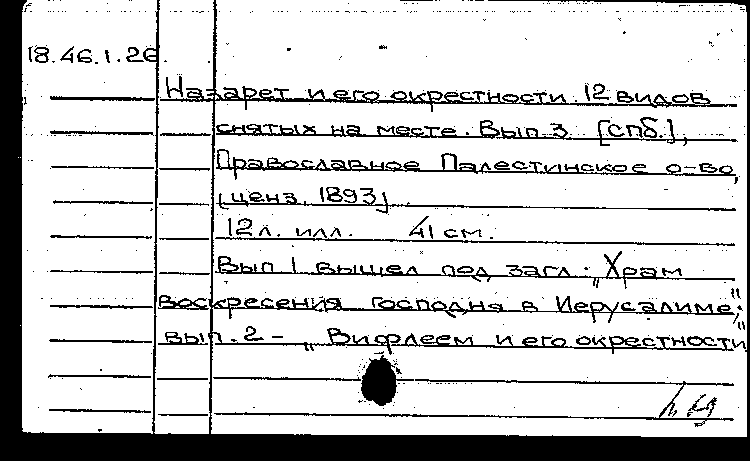 18.46.1.26.
Назарет и его окрестности. 12 видов
снятых на месте. Вып. 3. [спб.],
Православное Палестинское о-во,
[ценз. 1893]
12 л. илл. 41 см.
Вып 1 вышел под загл.: „Храм
воскресения господня в Иерусалиме";
вып. 2 - „Вифлеем и его окрестности"